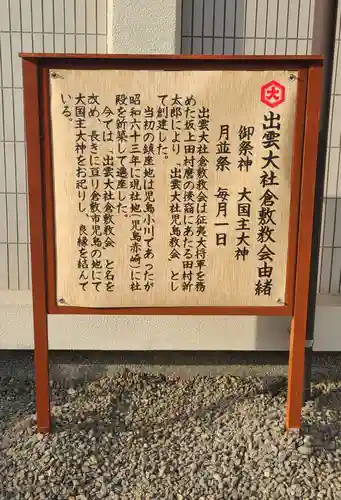 大
出雲大社倉敷教会由緒
御祭神 大国主大神
月並祭 毎月一日
出雲大社倉敷教会は征夷大将軍を務
めた坂上田村麿の後裔にあたる田村新
太郎により、「出雲大社児島教会」とし
て創建した。
当初の鎮座地は児島小川であったが
昭和六十三年に現社地(児島赤崎)に社
殿を新築して遷座した。
今では「出雲大社倉敷教会」と名を
改め、長きに亘り倉敷市児島の地にて
大国主大神をお祀りし、良縁を結んで
いる。